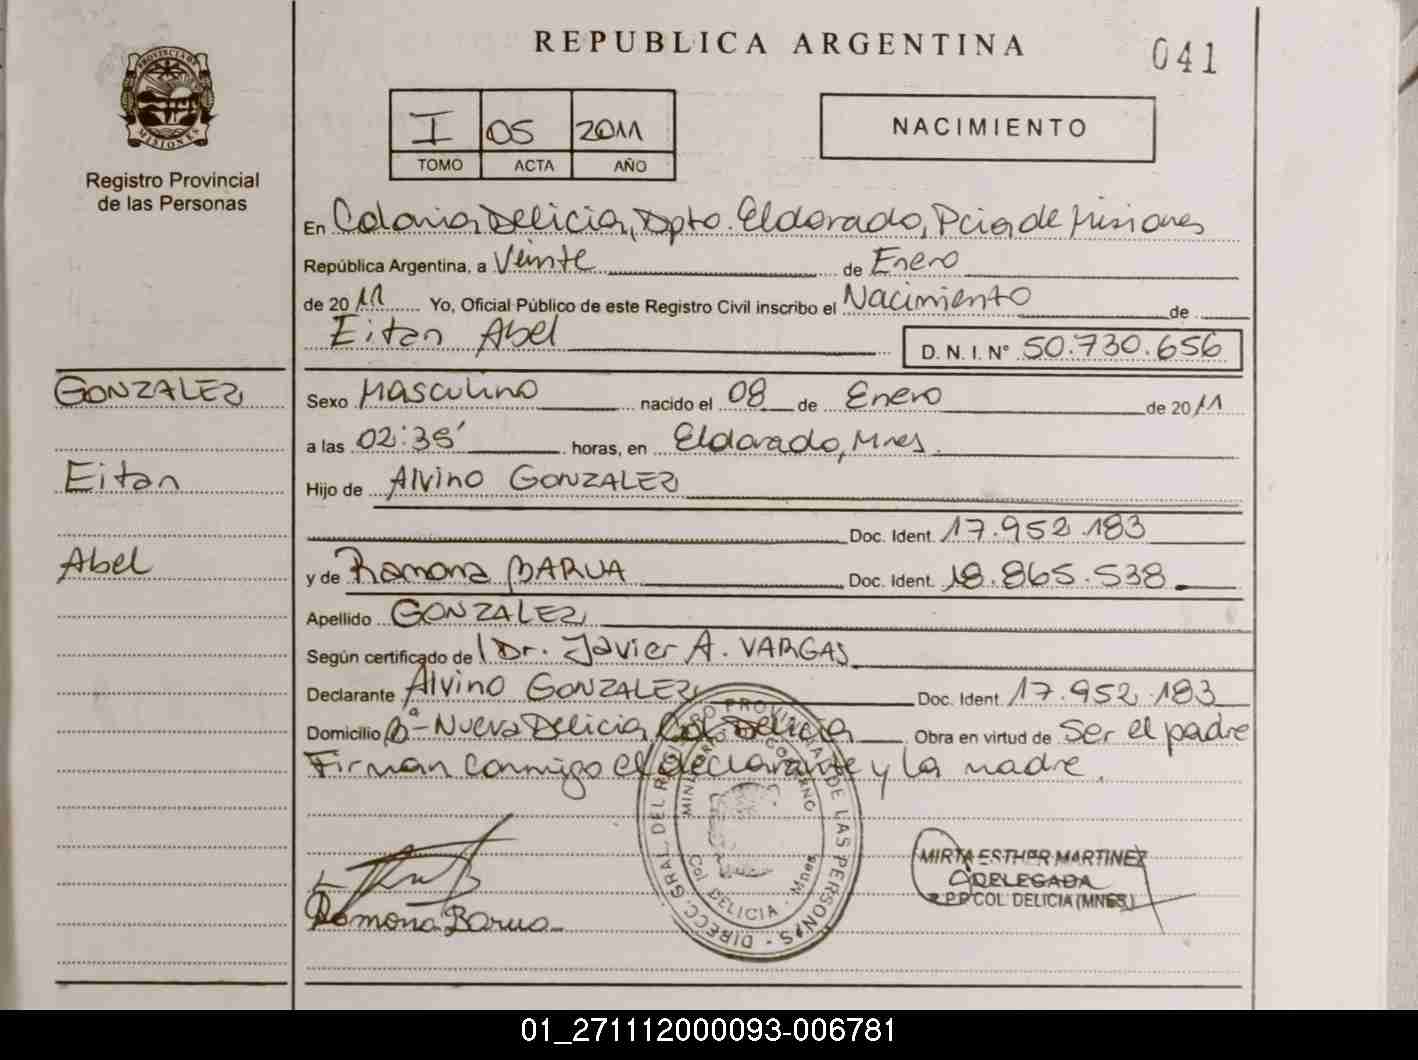 REPUBLICA ARGENTINA
041
PROVINCIA DE
MISIONES
Registro Provincial
de las Personas
I 05 2011
TOMO ACTA AÑO
NACIMIENTO
En Colonia Delicia, Dpto. Eldorado, Pcia de Misiones
República Argentina, a Veinte de Enero
de 2011 Yo, Oficial Público de este Registro Civil inscribo el Nacimiento de
Eitan Abel D. N. I. N° 50.730.656
GONZALEZ
Eitan
Abel
Sexo Masculino nacido el 08 de Enero de 2011
a las 02:35' horas, en Eldorado, Mnes.
Hijo de Alvino GONZALEZ
Doc. Ident. 17.952.183
y de Ramona BARUA Doc. Ident. 18.865.538
Apellido GONZALEZ
Según certificado de Dr. Javier A. VARGAS
Declarante Alvino GONZALEZ Doc. Ident. 17.952.183
Domicilio Bº- Nueva Delicia Col. Delicia Obra en virtud de Ser el padre
Firman conmigo el declarante y la madre.
DIRECC. GRAL. DEL REGISTRO PROVINCIAL DE LAS PERSONAS
MINISTERIO DE GOBIERNO
Col. DELICIA - Mnes
Ramona Barua
MIRTA ESTHER MARTINEZ
DELEGADA
R.P.P COL. DELICIA (MNES)
01_271112000093-006781